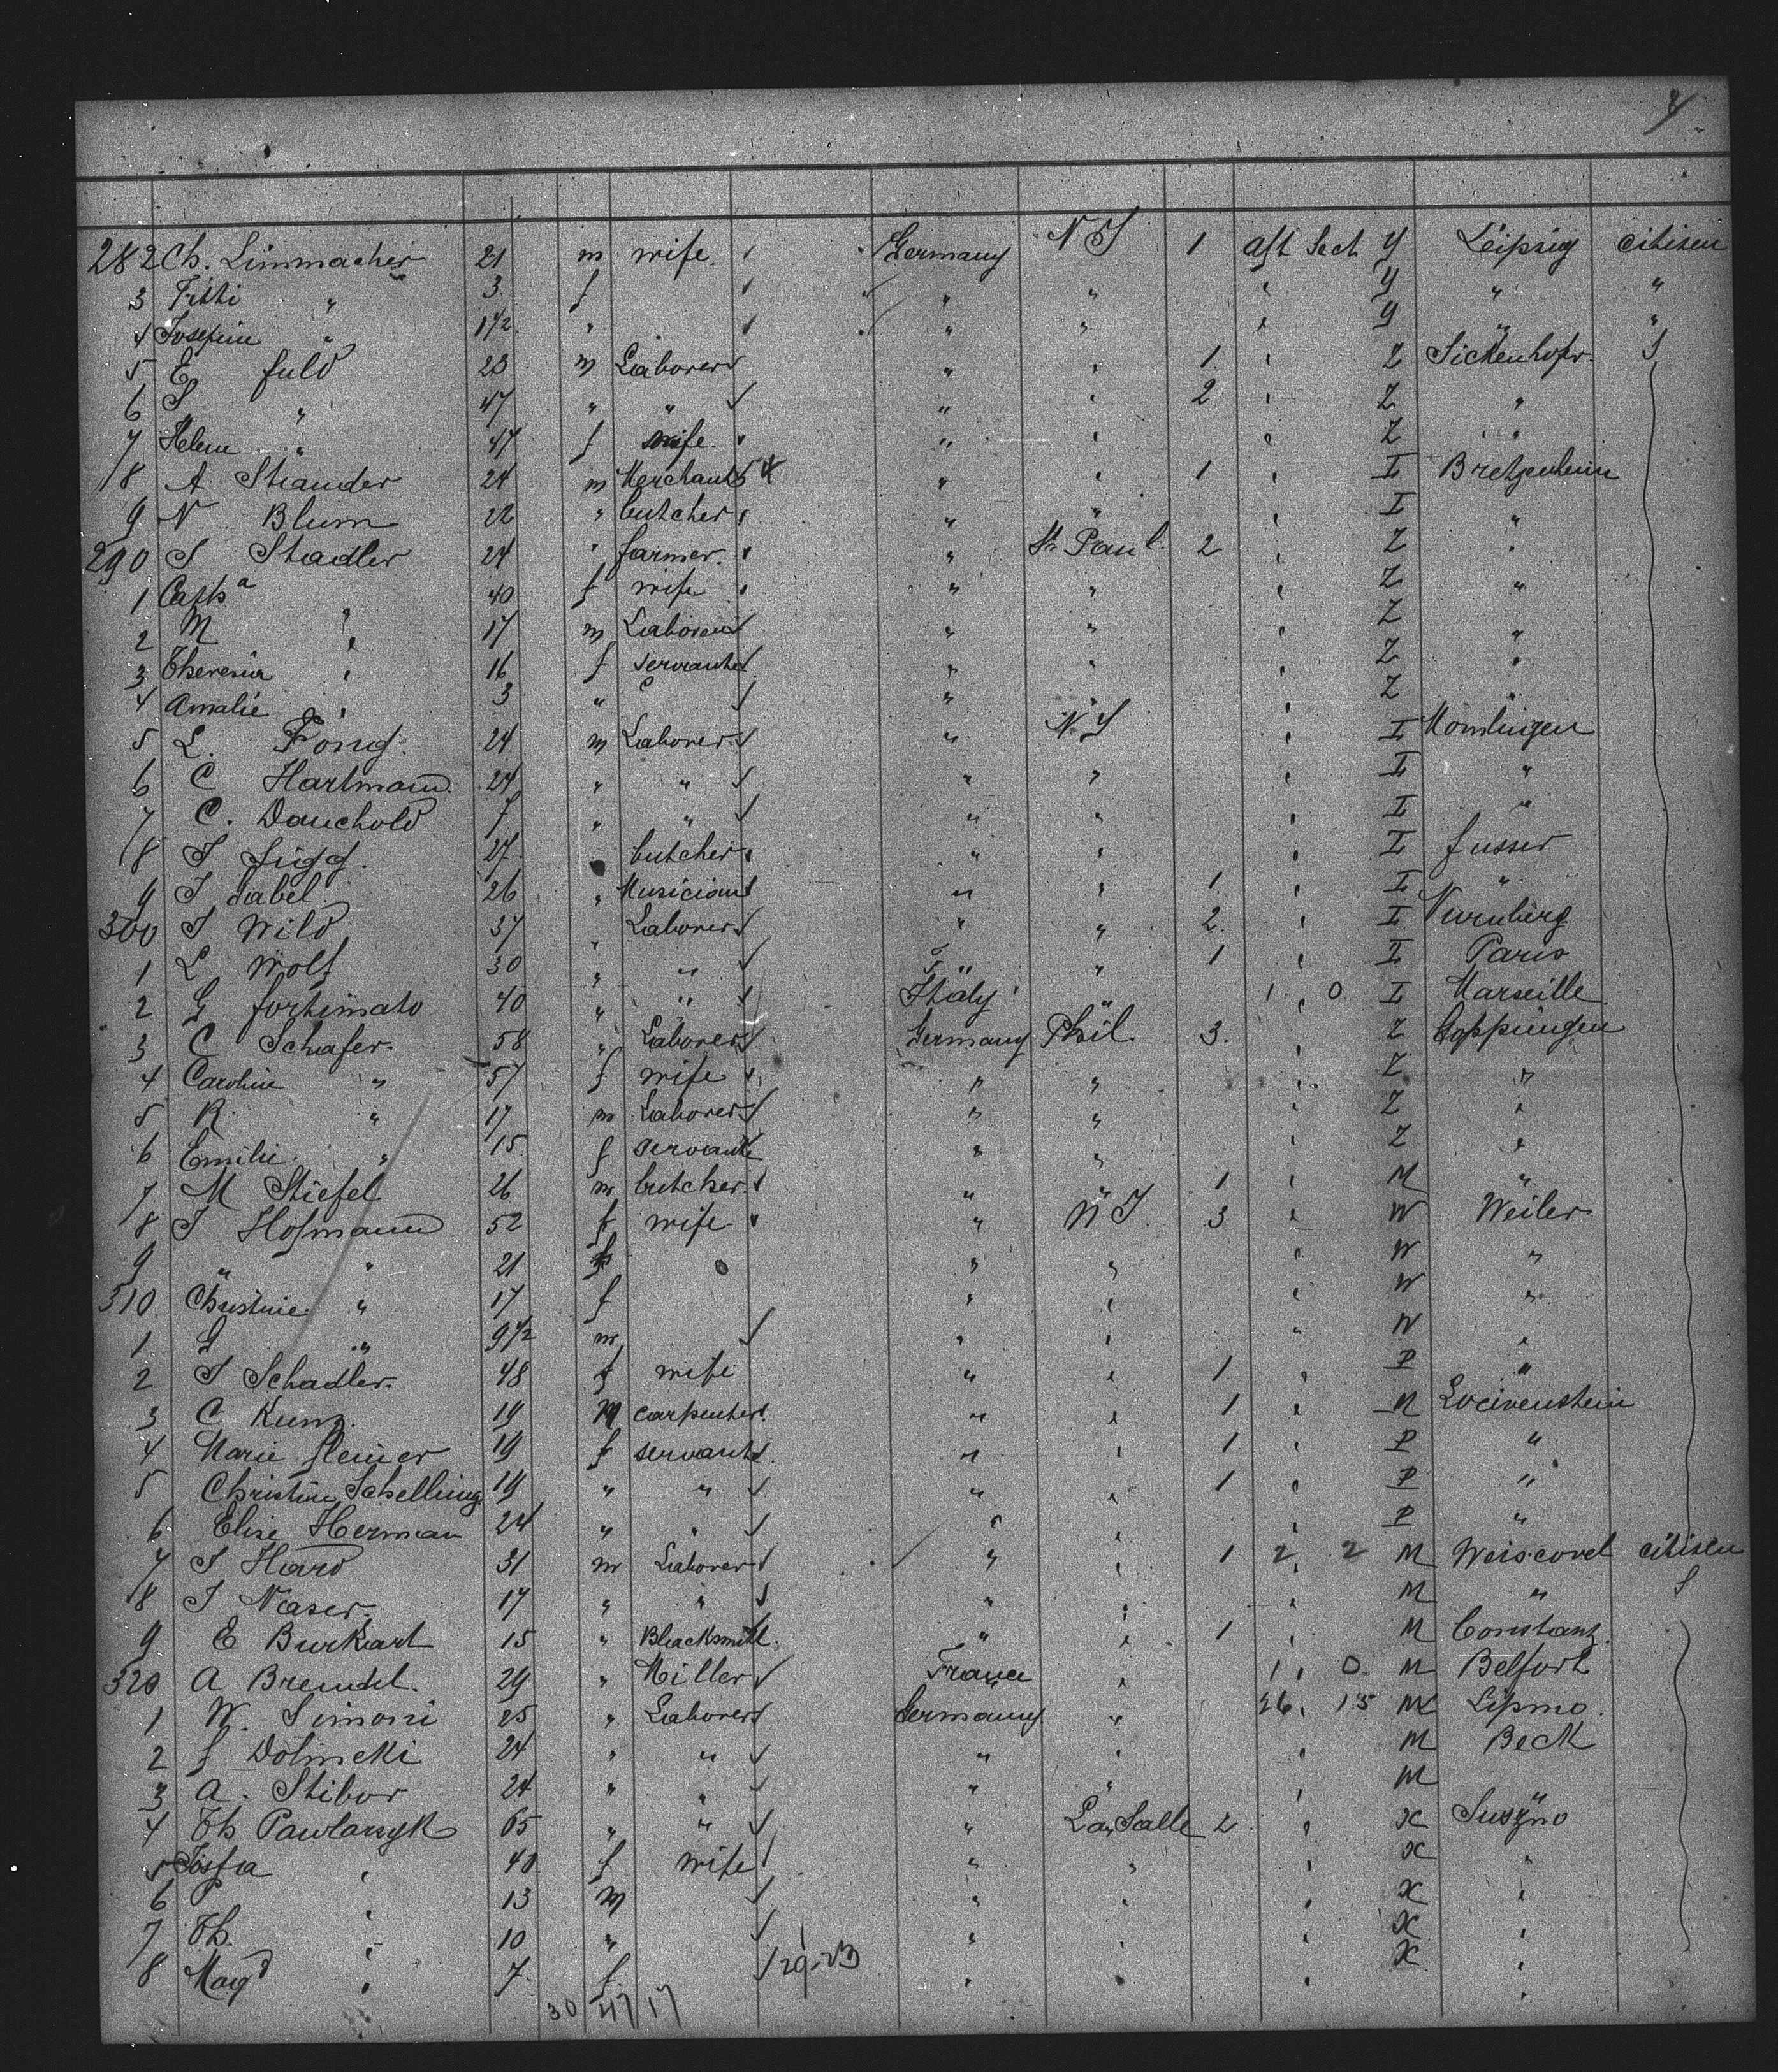 282 Ch. Limmacher 21 m wife. Germany N Y 1 aft Sect Y Leipzig citisen
3 Fritti " 3 f " " " Y " "
4 Josefine " 1 1/2 " " " " Y " "
5 E fuld 23 m Laborer " " 1. " Z Sickenhofr. S
6 S " 47 " " " " 2 " Z "
7 Helene " 47 f wife. " " " Z "
8 A Strauder 24 m Merchant " " 1 " I Bretzenheim
9 N Blum 22 " butcher " " " I "
290 S Stadler 24 " farmer. " St Paul. 2 " Z "
1 Cath a " 40 f wife " " " Z "
2 M " 17 m Laborer " " " Z "
3 Theresia " 16 f servant " " " Z "
4 Amalie " 3 " C " " " Z "
5 L. Fong. 24 m Laborer " N Y " I Mömlingen
6 C Hartmann. 24 " " " " " I "
7 C. Dauchold " " " " " I "
8 J figg. 27. butcher " " " I fusser
9 J Gabel. 26 " Musician " " 1. " I "
300 J Wild 37 " Laborer " " 2. " I Nurnberg
1 L Wolf 30 " " " 1 " I Paris
2 G fortimato 40 " " Ithaly " 1 " 0 I Marseille.
3 C Schafer. 58 " Laborer Germany Phil. 3. " Z Goppingen
4 Caroline " 57 f wife " " " Z "
5 R. " 17 m Laborer " " " Z "
6 Emilie. " 15 f servant " " " Z "
7 M Stiefel 26 m butcher. " " 1 " M "
8 J Hofmann 52 f wife " N Y. 3 " W Weiler
9 " " 21 f " " " W "
310 Christine. " 17 f " " " W "
1 G " 9 1/2 m " " " W "
2 J Schadler. 48 f wife " " 1. " P "
3 C Kunz. 19 M carpenter. " " 1 " M
4 Marie fleiner 19 f servant. " " 1 " P "
5 Christine Schelling 19 " " " " 1 " P "
6 Elise Herman 24 " " " " " P "
7 J Hard 31 m Laborer " " 1 2 " 2 M citisen
8 J Naser. 17 " " " " " M " S
9 E Burkart 15 " Blacksmith. " " 1 " M Constanz.
320 A Brendel. 29 " Miller France " 1 " 0. M Belfort
1 W. Simoni 25 " Laborer Germany " 26 " 15 M Lipmo.
2 f Dolincki 24 " " " " " M Beck
3 A. Stibor 24 " " " " " M "
4 Th Pawlarsyk 65 " " " La Salle 2. " X Suszno
5 Josfa " 40 f wife " " " X "
6 P " 13 m " " " X "
7 Th. " 10 " " " " X "
8 Mag d " 7. f. 29-23 " " " X "
30 47 17